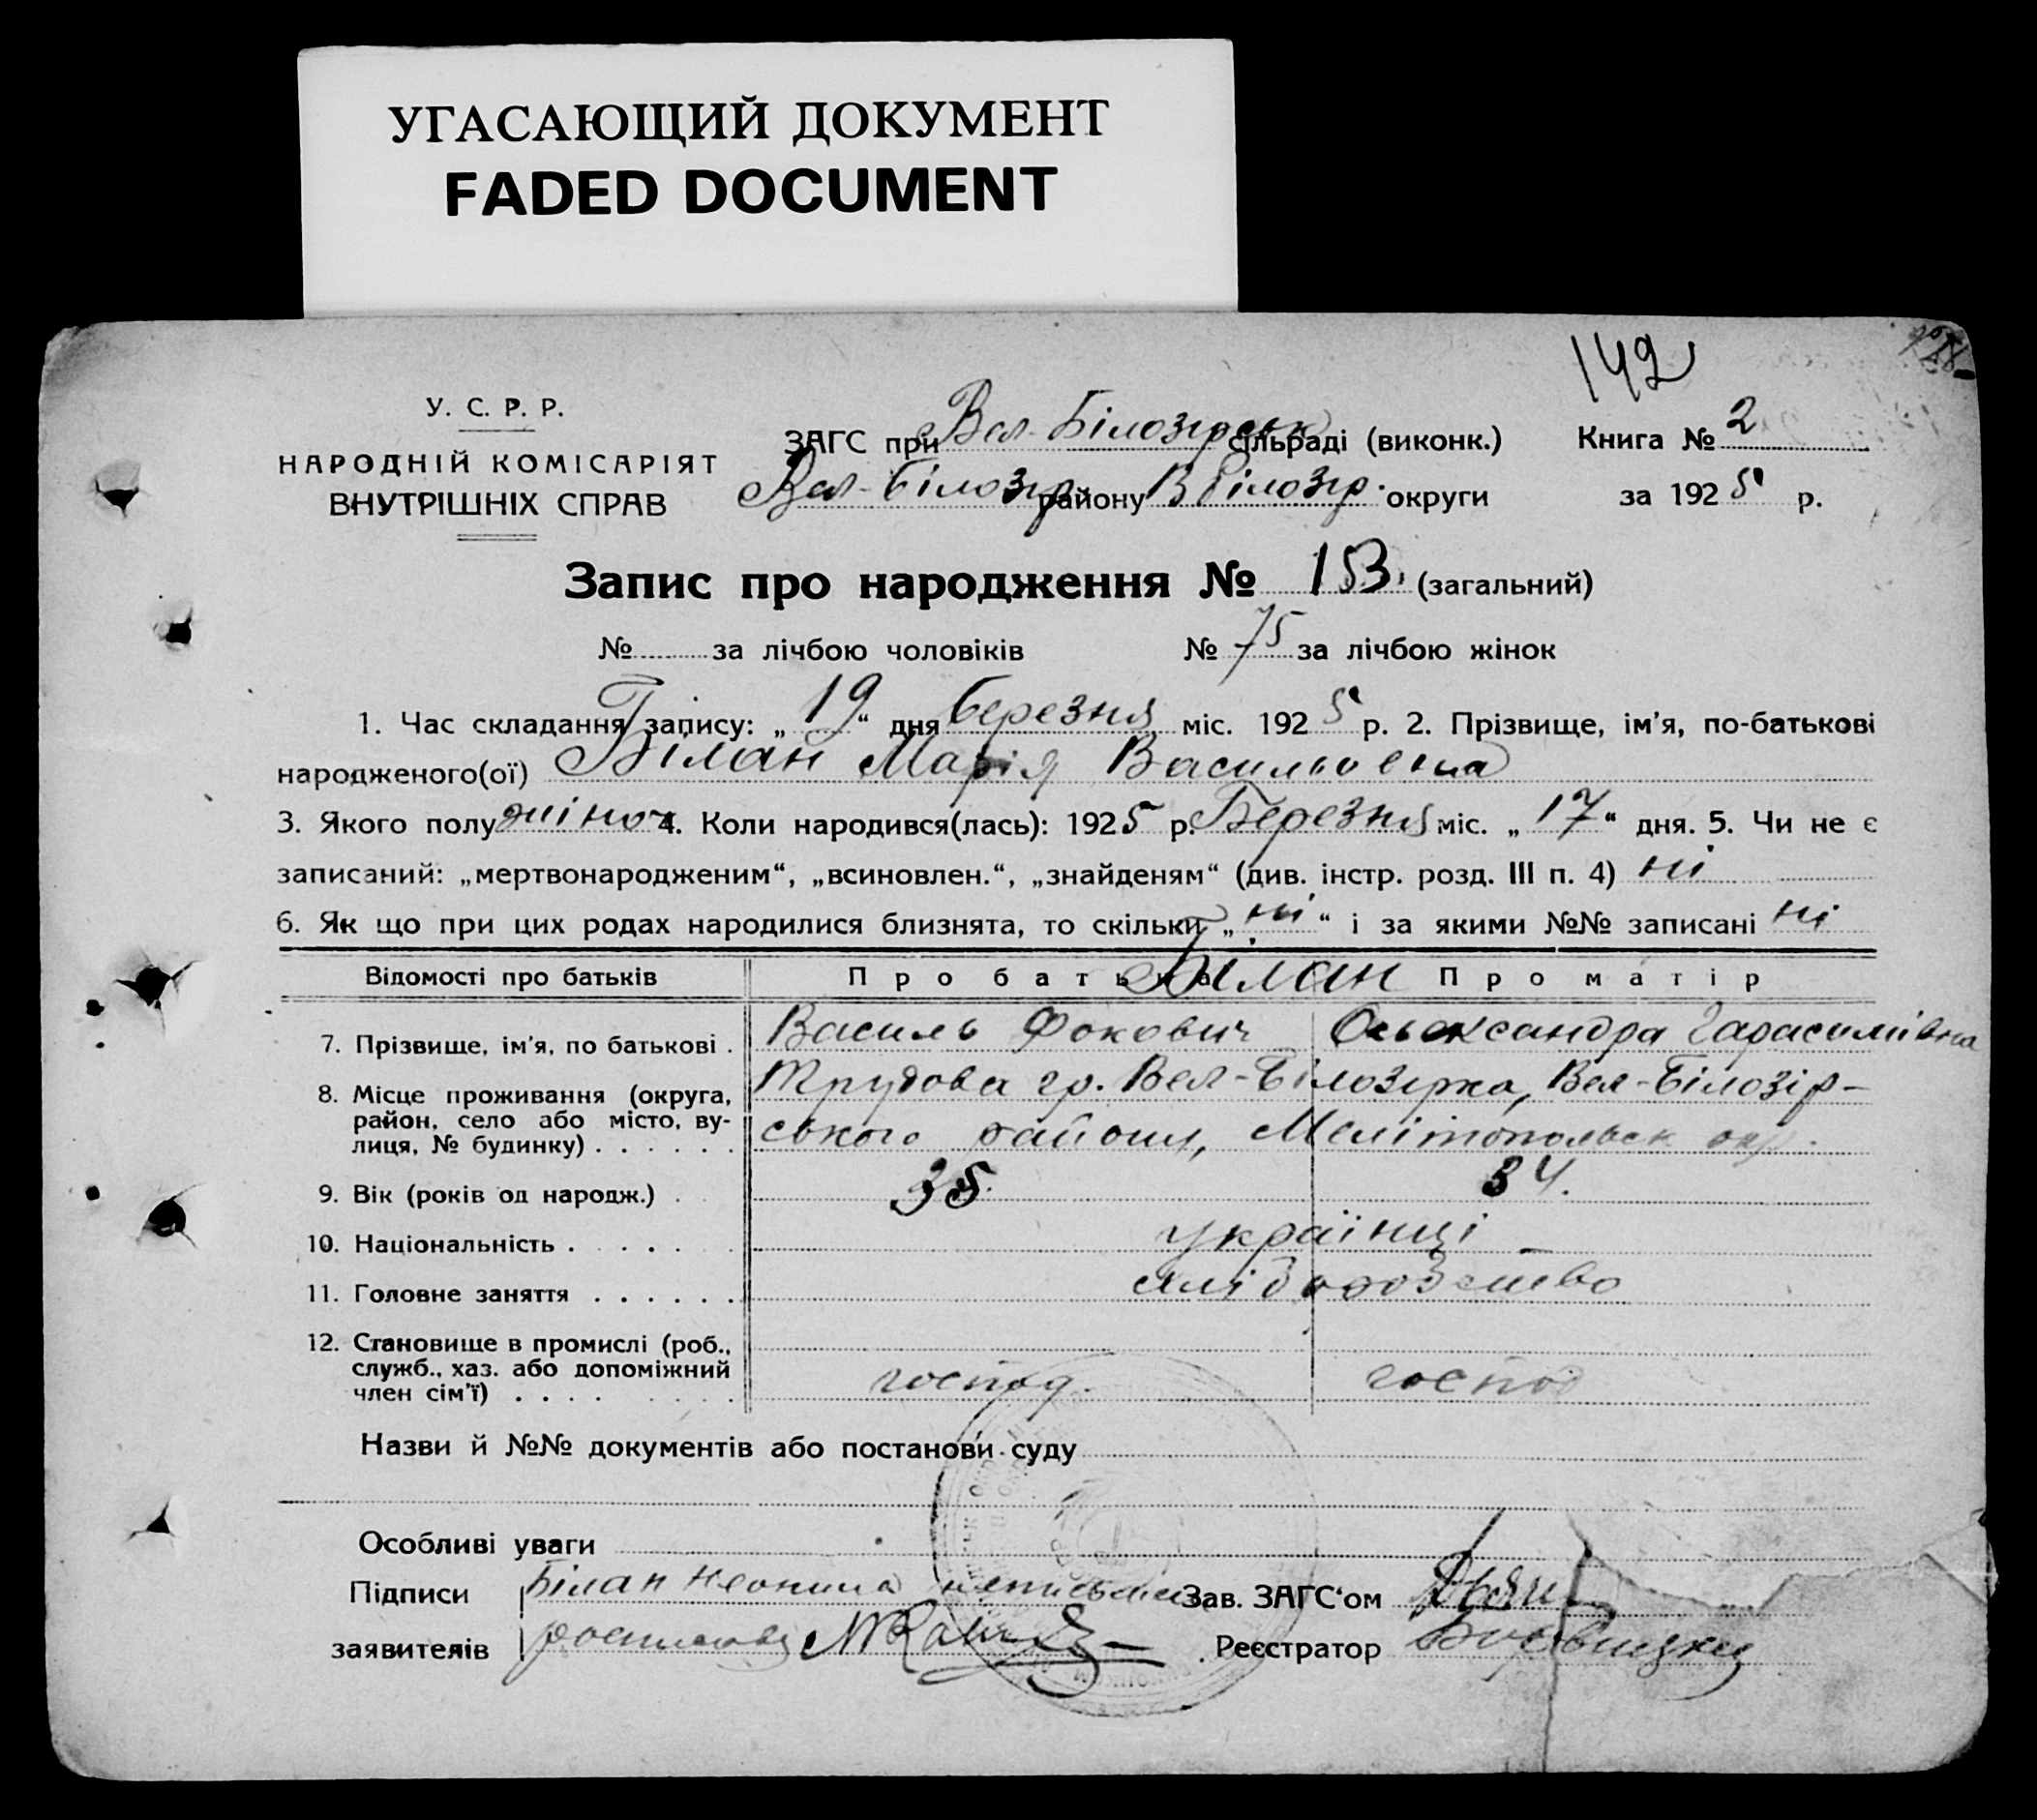 УГАСАЮЩИЙ ДОКУМЕНТ
FADED DOCUMENT
142
У. С. Р. Р.
НАРОДНІЙ КОМІСАРІЯТ
ВНУТРІШНІХ СПРАВ
ЗАГС при Вел-Білозірською сільраді (виконк.) Книга № 2
Вел-Білозір району В Білозір. округи за 1925 р.
Запис про народження № 153. (загальний)
№ за лічбою чоловіків № 75 за лічбою жінок
1. Час складання запису: „19“ дня березня міс. 1925 р. 2. Прізвище, ім'я, по-батькові
народженого(ої) Білан Марія Васильовна
3. Якого полу жіноч 4. Коли народився(лась): 1925 р. Березня міс. „17“ дня. 5. Чи не є
записаний: „мертвонародженим“, „всиновлен.“, „знайденям“ (див. інстр. розд. III п. 4) ні
6. Як що при цих родах народилися близнята, то скільки „ні“ і за якими №№ записані ні
Відомості про батьків Про батька Білан Про матір
7. Прізвище, ім'я, по батькові . Василь Фокович Олександра Гарасимівна
8. Місце проживання (округа, Трудова гр. Вел-Білозірка, Вел-Білозір-
район, село або місто, ву- ського району, Мелітопольськ окр.
лиця, № будинку) . . . . . .
9. Вік (років од народж.) . 35. 34.
10. Національність . . . . . українці
11. Головне заняття . . . . . . хліборобство
12. Становище в промислі (роб.,
служб., хаз. або допоміжний
член сім'ї) . . . . господ. господ
Назви й №№ документів або постанови суду
Особливі уваги
Підписи Білан неписьмен Зав. ЗАГС'ом
заявителів Реєстратор